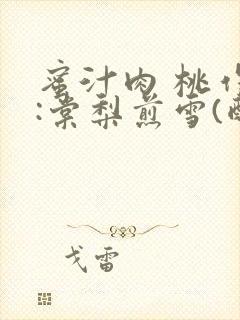 蜜汁肉桃作
:棠梨煎雪(酥
戈雷